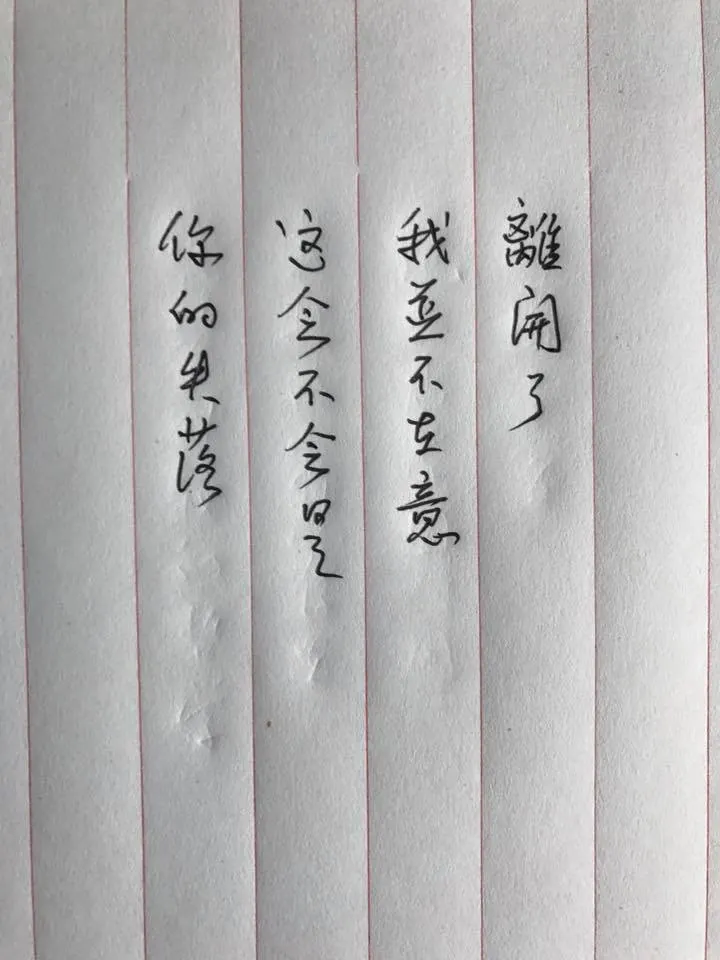 離開了
我並不在意
这会不会是
你的失落